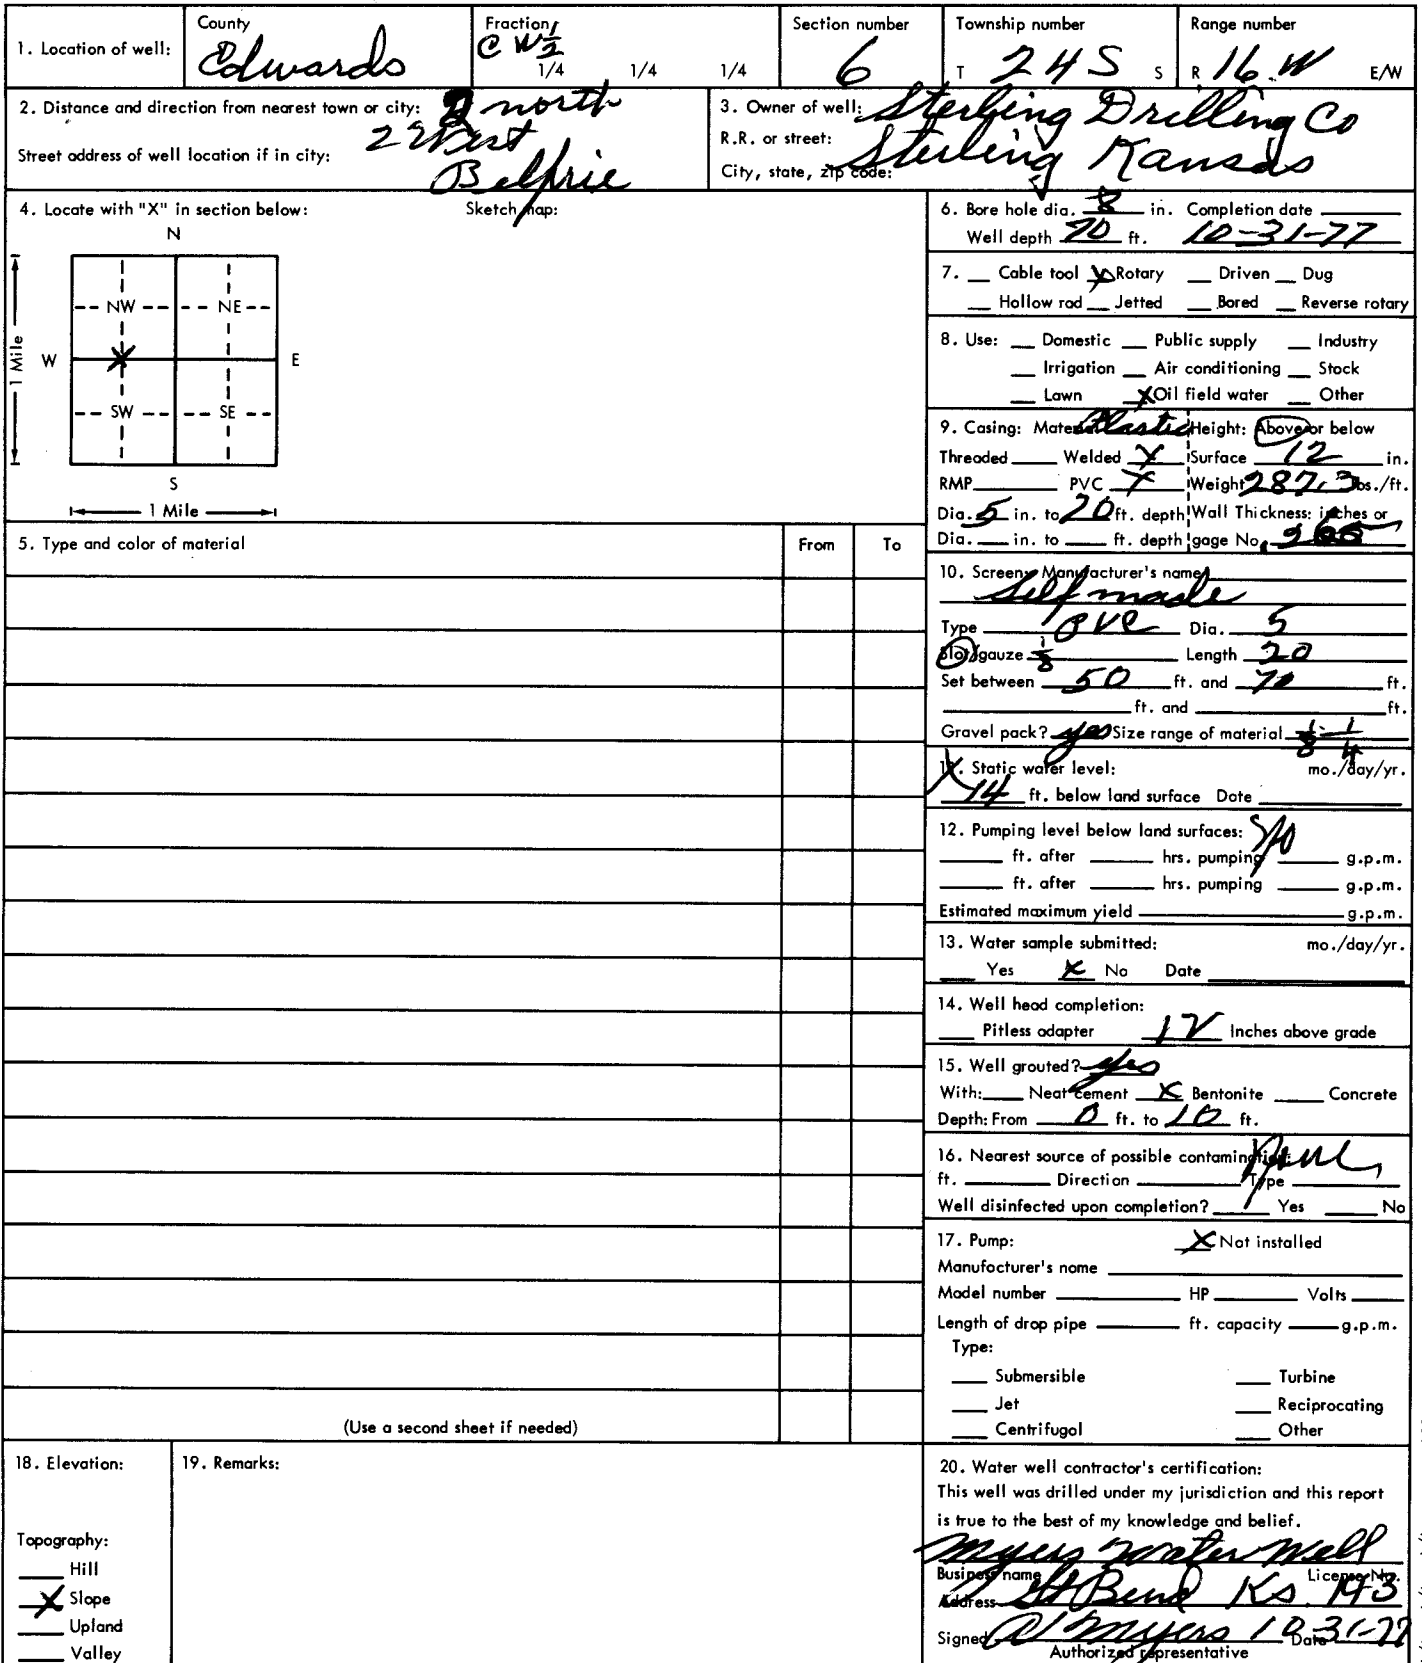 County Fraction Section number Township number Range number
1. Location of well: Edwards C W 1/2 1/4 1/4 1/4 6 T 24 S S R 16 W E/W
2. Distance and direction from nearest town or city: north
2 West
Street address of well location if in city:
3. Owner of well: Sterling Drilling Co
R.R. or street:
City, state, zip code: Sterling Kansas
4. Locate with "X" in section below: Sketch map:
N
NW NE
W X E
SW SE
S
1 Mile
1 Mile
5. Type and color of material From To
(Use a second sheet if needed)
6. Bore hole dia. 8 in. Completion date
Well depth 70 ft. 10-31-77
7. Cable tool X Rotary Driven Dug
Hollow rod Jetted Bored Reverse rotary
8. Use: Domestic Public supply Industry
Irrigation Air conditioning Stock
Lawn X Oil field water Other
9. Casing: Material Plastic Height: Above or below
Threaded Welded X Surface 12 in.
RMP PVC X Weight 287.3 lbs./ft.
Dia. 5 in. to 20 ft. depth Wall Thickness: inches or
Dia. in. to ft. depth gage No.
10. Screen: Manufacturer's name
Self made
Type PVC Dia. 5
Slot/gauze 1/8 Length 20
Set between 50 ft. and 70 ft.
ft. and ft.
Gravel pack? yes Size range of material 1/8 - 1/4
11. Static water level: mo./day/yr.
14 ft. below land surface Date
12. Pumping level below land surfaces:
ft. after hrs. pumping g.p.m.
ft. after hrs. pumping g.p.m.
Estimated maximum yield g.p.m.
13. Water sample submitted: mo./day/yr.
Yes X No Date
14. Well head completion:
Pitless adapter 12 Inches above grade
15. Well grouted? yes
With: Neat cement X Bentonite Concrete
Depth: From 0 ft. to 10 ft.
16. Nearest source of possible contamination:
ft. Direction Type
Well disinfected upon completion? Yes No
17. Pump: X Not installed
Manufacturer's name
Model number HP Volts
Length of drop pipe ft. capacity g.p.m.
Type:
Submersible Turbine
Jet Reciprocating
Centrifugal Other
18. Elevation:
Topography:
Hill
X Slope
Upland
Valley
19. Remarks:
20. Water well contractor's certification:
This well was drilled under my jurisdiction and this report
is true to the best of my knowledge and belief.
Myers Water Well
Business name License No.
Address Gt Bend Ks. 143
Signed Myers 10-31-77 Date
Authorized representative